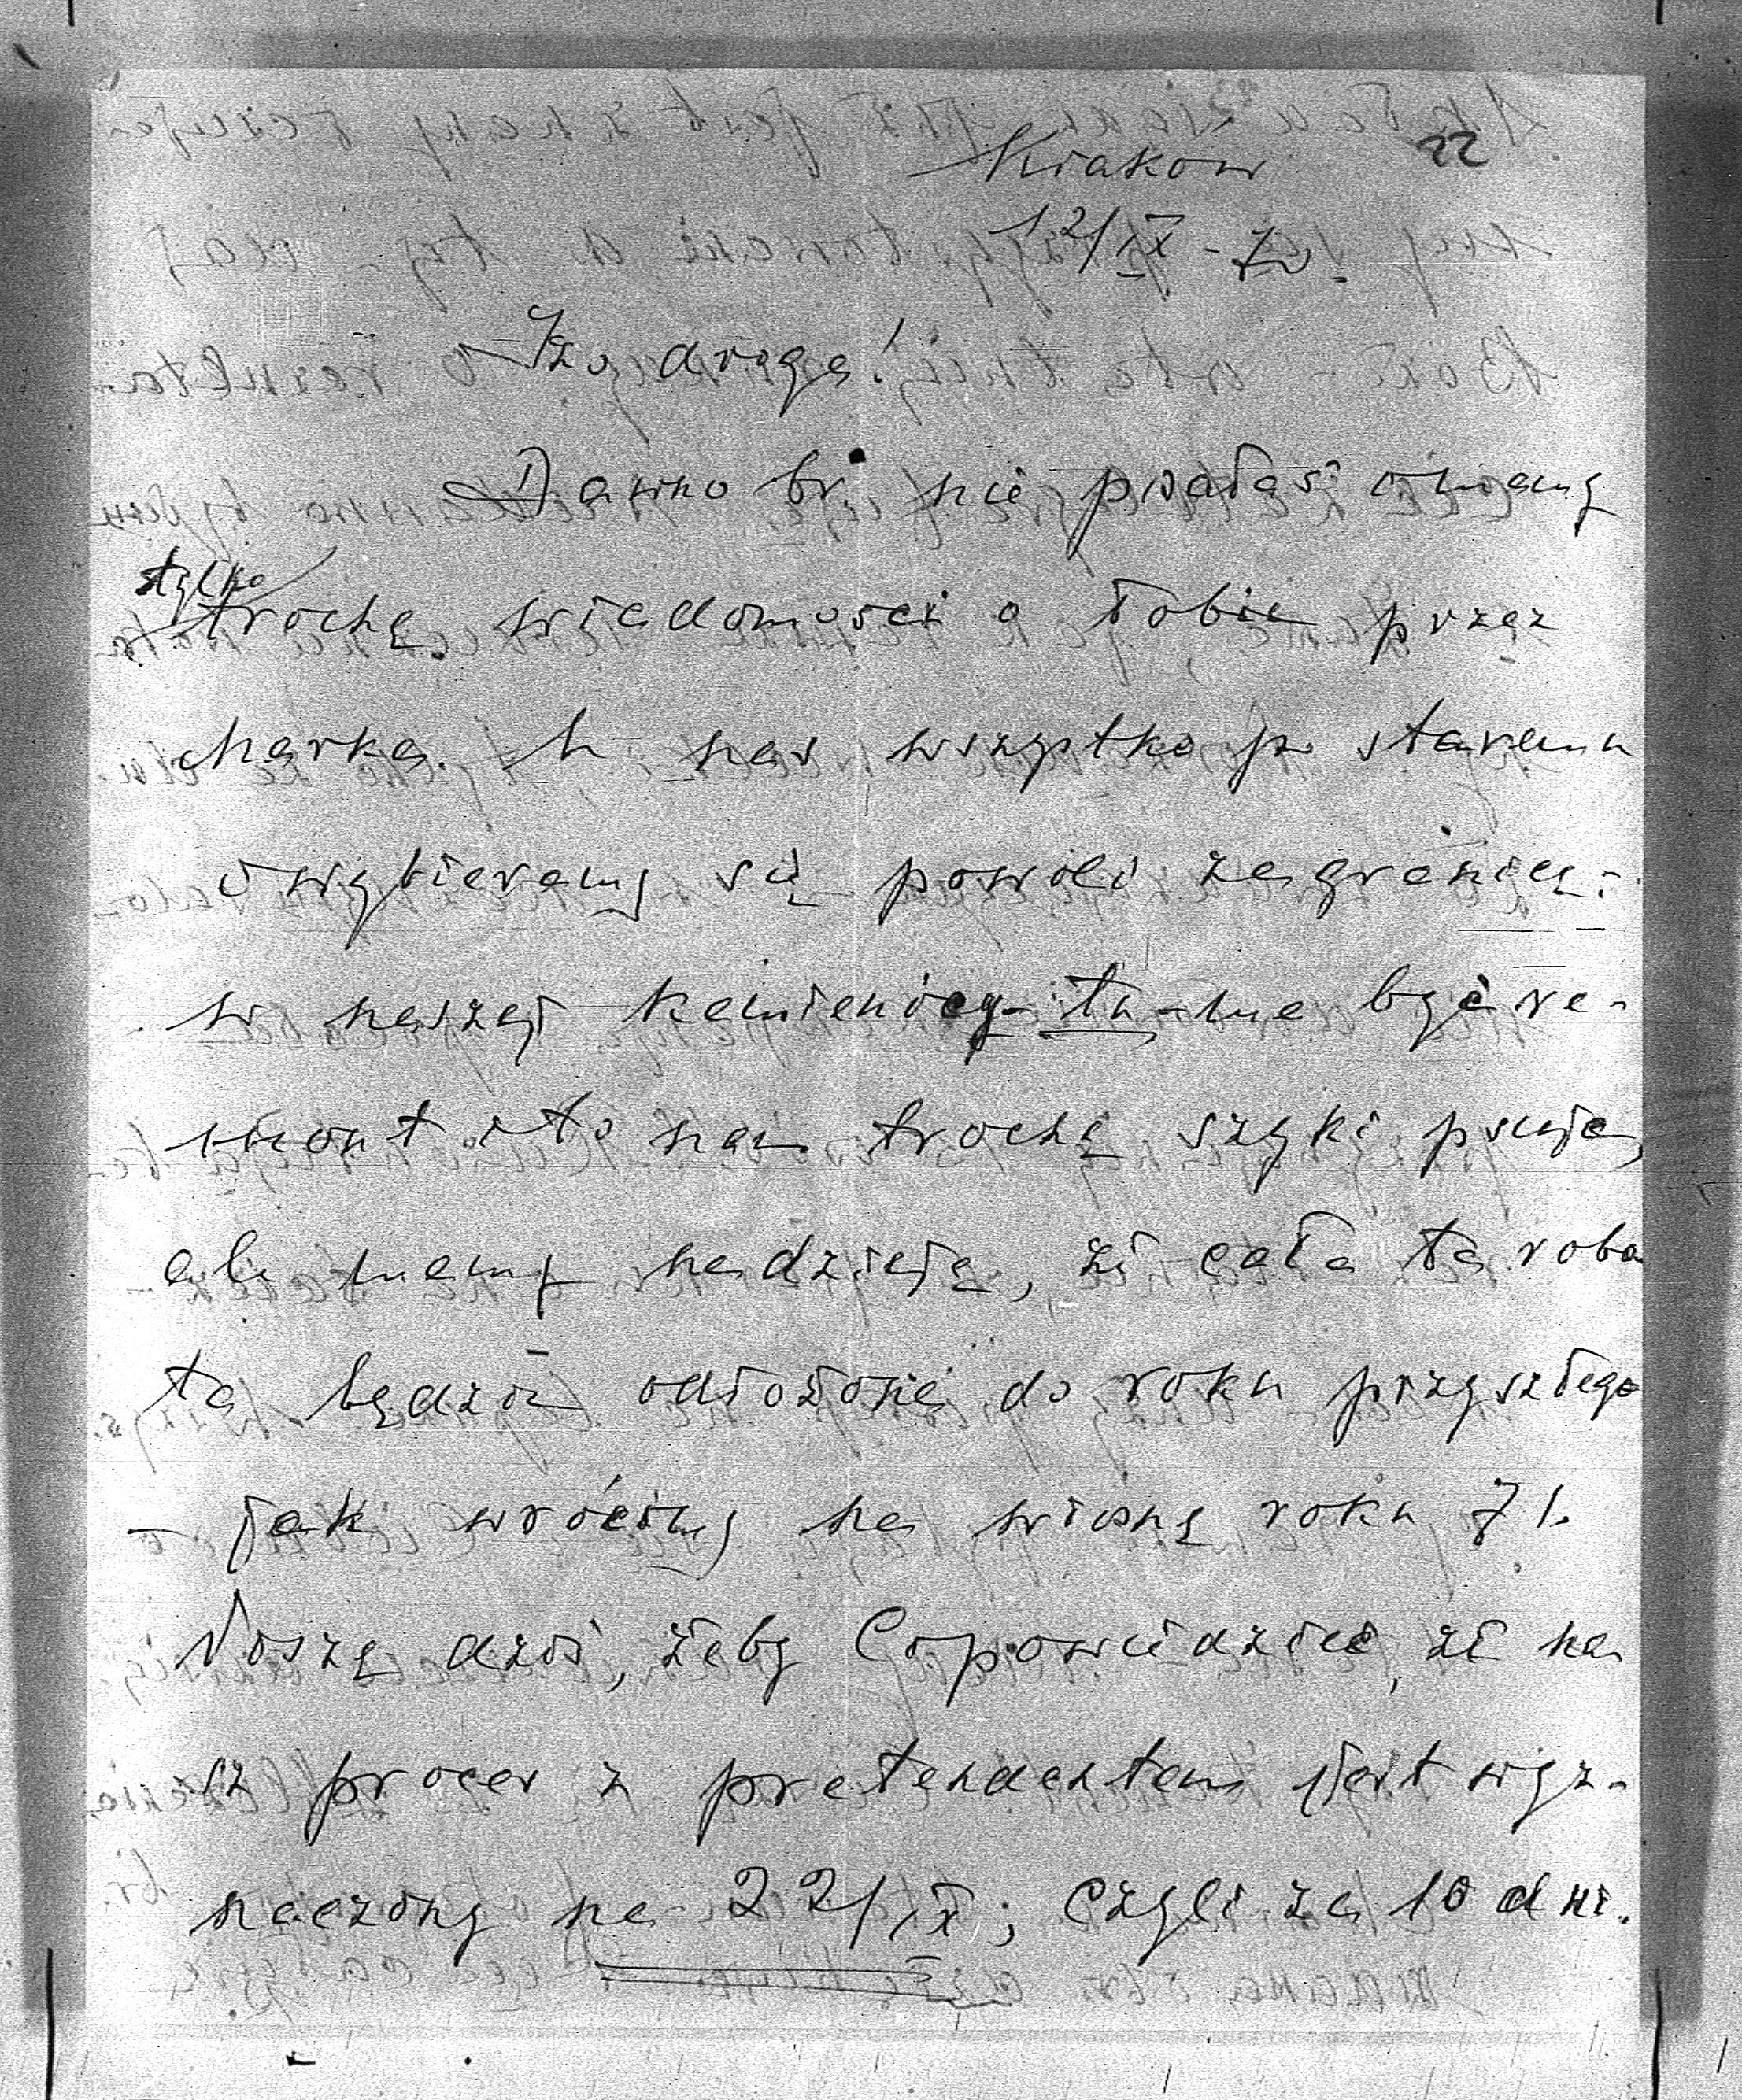 22
Kraków
12/IX - 70.
Izo droga!
Dawno b. nie pisałaś i mamy
tylko
trochę wiadomości o Tobie przez
Marka. U nas wszystko po staremu
i wybieramy się powoli zagranicę:
w naszej kamienicy - tu - ma być re-
mont i to nam trochę szyki psuje,
ale mamy nadzieję, że cała ta robo
ta będzie odłożona do roku przyszłego
- jak wrócimy na wiosnę roku 71.
Piszę dziś, żeby Ci powiedzieć, że na
sz proces z pretendentem jest wyz-
naczony na 22/IX; czyli za 10 dni.